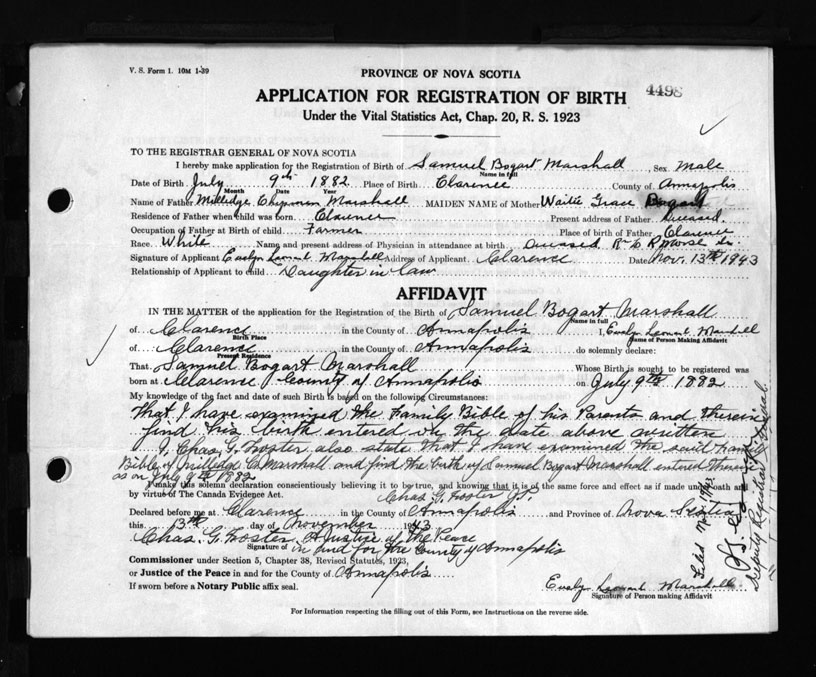 V. S. Form 1. 10M 1-39
PROVINCE OF NOVA SCOTIA
4498
APPLICATION FOR REGISTRATION OF BIRTH
Under the Vital Statistics Act, Chap. 20, R. S. 1923
TO THE REGISTRAR GENERAL OF NOVA SCOTIA
I hereby make application for the Registration of Birth of Samuel Bogart Marshall Sex Male
Name in full
Date of Birth July 9th 1882 Place of Birth Clarence County of Annapolis
Month Date Year
Name of Father Milledge Chapman Marshall MAIDEN NAME of Mother Waitie Grace Bogart
Residence of Father when child was born Clarence Present address of Father Deceased
Occupation of Father at Birth of child Farmer Place of birth of Father Clarence
Race. White Name and present address of Physician in attendance at birth Deceased Morse
Signature of Applicant Evelyn Marshall Address of Applicant Clarence Date Nov. 13th 1943
Relationship of Applicant to child Daughter in law
AFFIDAVIT
IN THE MATTER of the application for the Registration of the Birth of Samuel Bogart Marshall
Name in full
of Clarence in the County of Annapolis I, Evelyn Marshall
Birth Place Name of Person Making Affidavit
of Clarence in the County of Annapolis do solemnly declare:
Present Residence
That Samuel Bogart Marshall Whose Birth is sought to be registered was
born at Clarence County of Annapolis on July 9th 1882
My knowledge of the fact and date of such Birth is based on the following Circumstances:
That I have examined the Family Bible of his Parents and therein
find his birth entered on the date above written
I, Chas. G. Foster also state that I have examined the said Family
Bible of Milledge C. Marshall and find the birth of Samuel Bogart Marshall entered therein
as on July 9th 1882
I make this solemn declaration conscientiously believing it to be true, and knowing that it is of the same force and effect as if made under oath and
by virtue of The Canada Evidence Act. Chas. G. Foster J.P.
Declared before me at Clarence in the County of Annapolis and Province of Nova Scotia
this 13th day of November 1943
Chas. G. Foster, A Justice of the Peace
Signature of in and for the County of Annapolis
Commissioner under Section 5, Chapter 38, Revised Statutes, 1923,
or Justice of the Peace in and for the County of Annapolis
If sworn before a Notary Public affix seal.
Evelyn Marshall
Signature of Person making Affidavit
For Information respecting the filling out of this Form, see Instructions on the reverse side.
Filed Nov 1943
Deputy Registrar General.